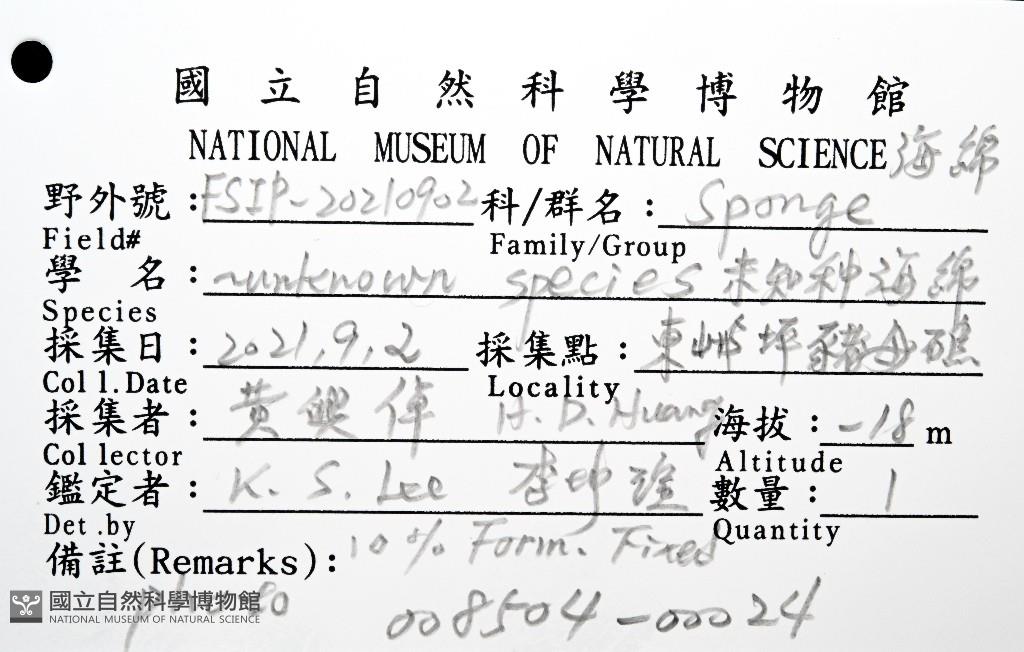 國立自然科學博物館
NATIONAL MUSEUM OF NATURAL SCIENCE 海綿
野外號：FSIP-20210902 科/群名：Sponge
Field# Family/Group
學 名：~unknown species 未知种海綿
Species
採集日：2021.9.2 採集點：東嶼坪豬母礁
Coll.Date Locality
採集者：黃興倬 H.D.Huang 海拔：-18 m
Collector Altitude
鑑定者：K. S. Lee 李坤瑄 數量：1
Det.by Quantity
備註(Remarks)：10% Form. Fixed
photo 008504-00024
國立自然科學博物館
NATIONAL MUSEUM OF NATURAL SCIENCE